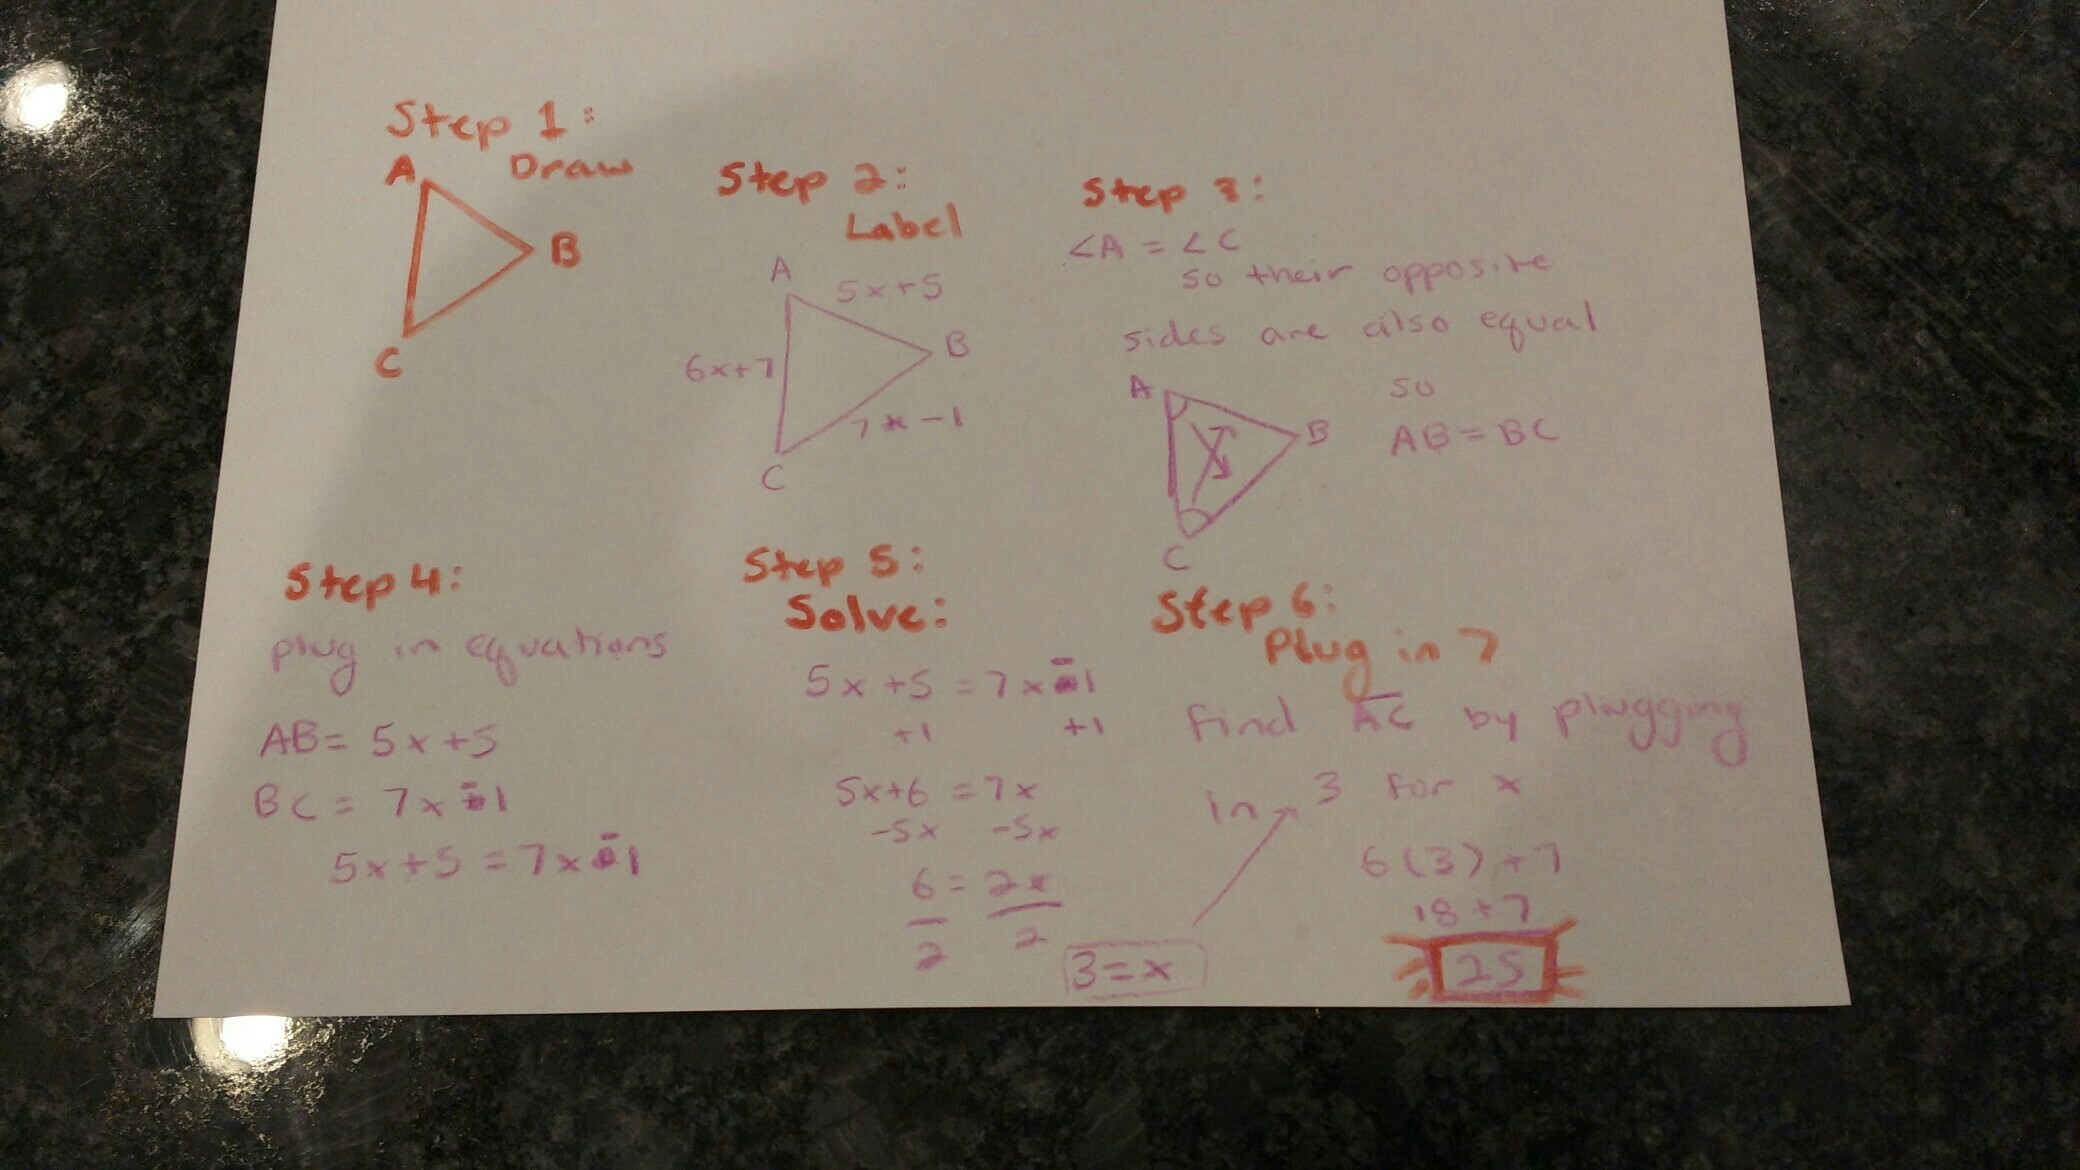 Step 1:
Draw
A
B
C
Step 2:
Label
A
5x+5
B
6x+7
7x-1
C
Step 3:
∠A = ∠C
so their opposite
sides are also equal
so
AB=BC
A
B
C
Step 4:
plug in equations
AB= 5x+5
BC= 7x-1
5x+5=7x-1
Step 5:
Solve:
5x+5=7x-1
+1 +1
5x+6=7x
-5x -5x
6=2x
2 2
3=x
Step 6:
Plug in 7
find AC by plugging
in 3 for x
6(3)+7
18+7
25